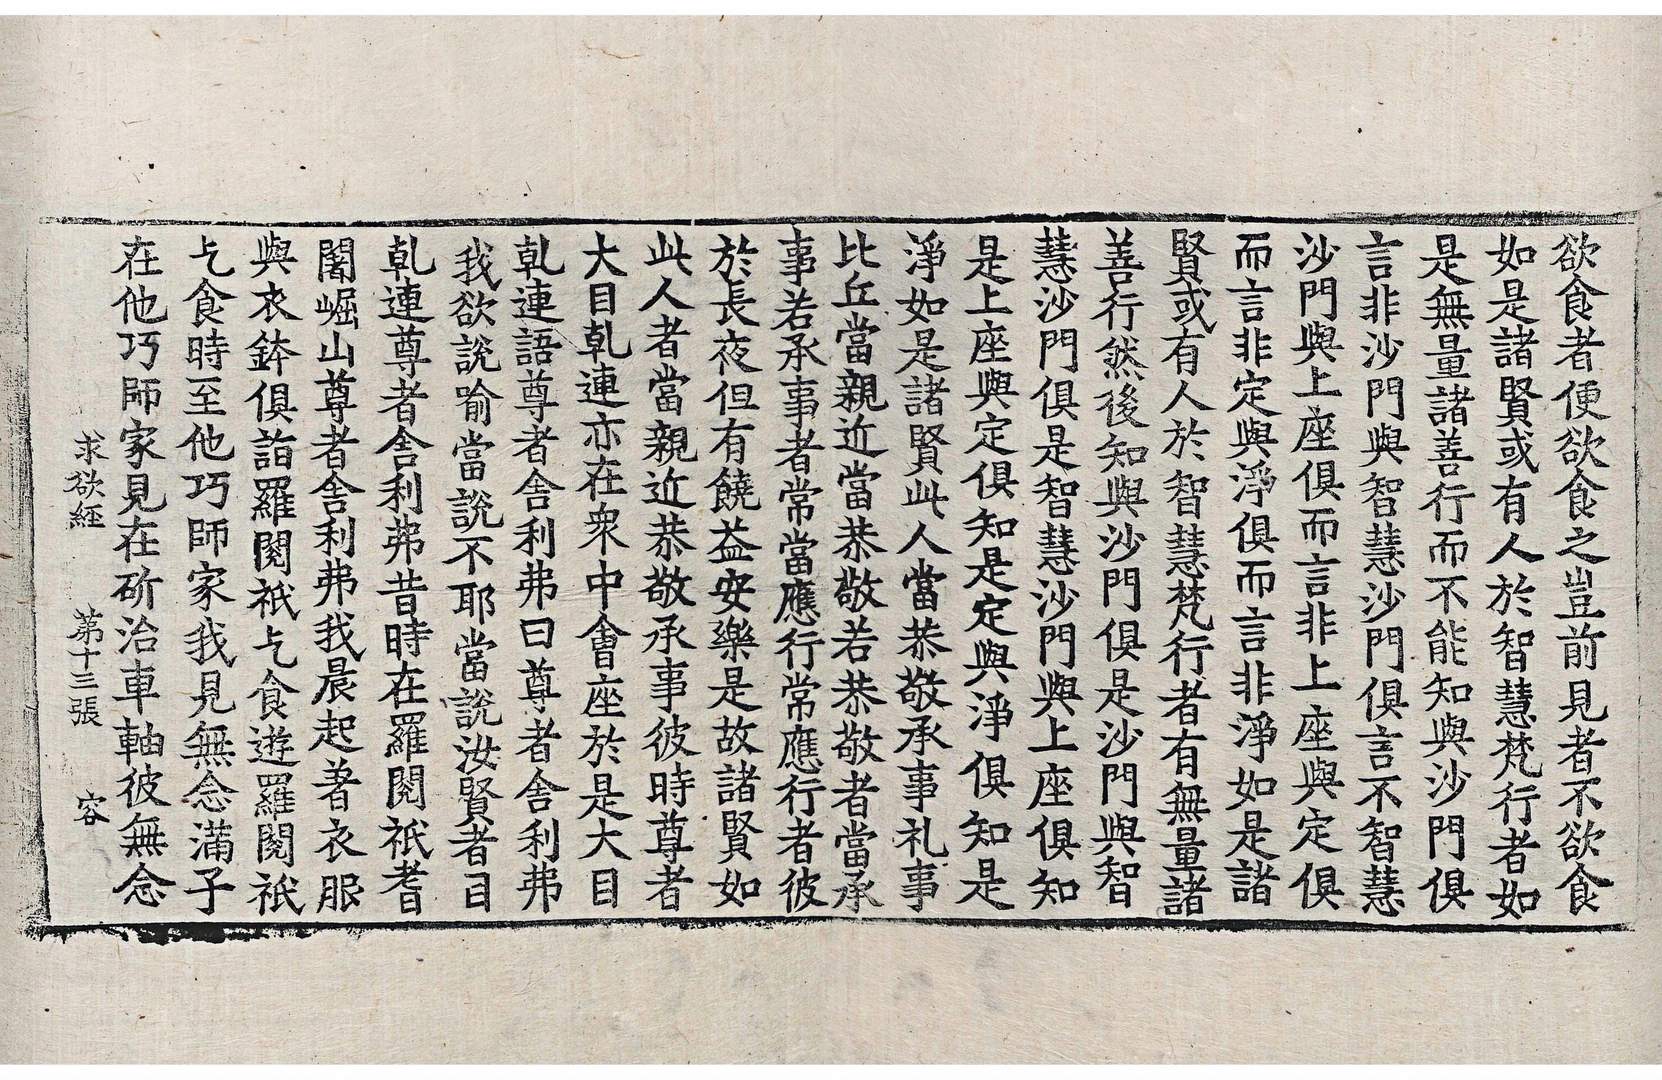 欲食者便欲食之豈前見者不欲食
如是諸賢或有人於智慧梵行者如
是無量諸善行而不能知與沙門俱
言非沙門與智慧沙門俱言不智慧
沙門與上座俱而言非上座與定俱
而言非定與淨俱而言非淨如是諸
賢或有人於智慧梵行者有無量諸
善行然後知與沙門俱是沙門與智
慧沙門俱是智慧沙門與上座俱知
是上座與定俱知是定與淨俱知是
淨如是諸賢此人當恭敬承事礼事
比丘當親近當恭敬若恭敬者當承
事若承事者常當應行常應行者彼
於長夜但有饒益安樂是故諸賢如
此人者當親近恭敬承事彼時尊者
大目乹連亦在衆中會座於是大目
乹連語尊者舍利弗曰尊者舍利弗
我欲說喻當說不耶當說汝賢者目
乹連尊者舍利弗昔時在羅閱祇耆
闍崛山尊者舍利弗我晨起著衣服
與衣鉢俱詣羅閱祇乞食遊羅閱祇
乞食時至他巧師家我見無念滿子
在他巧師家見在斫治車軸彼無念
求欲經 第十三張 容